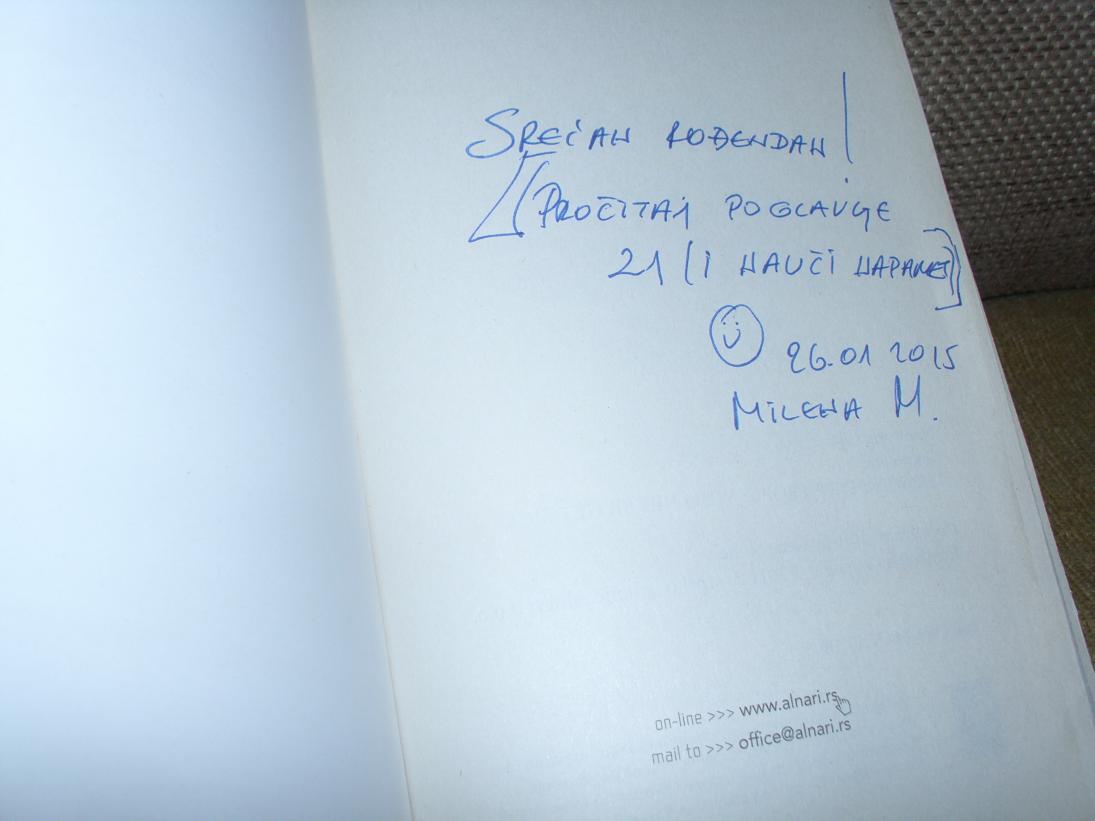 SREĆAN ROĐENDAN!
[(PROČITAJ POGLAVLJE
21 (I NAUČI NAPAMET)]
26.01 2015
MILENA M.
on-line >>> www.alnari.rs
mail to >>> office@alnari.rs